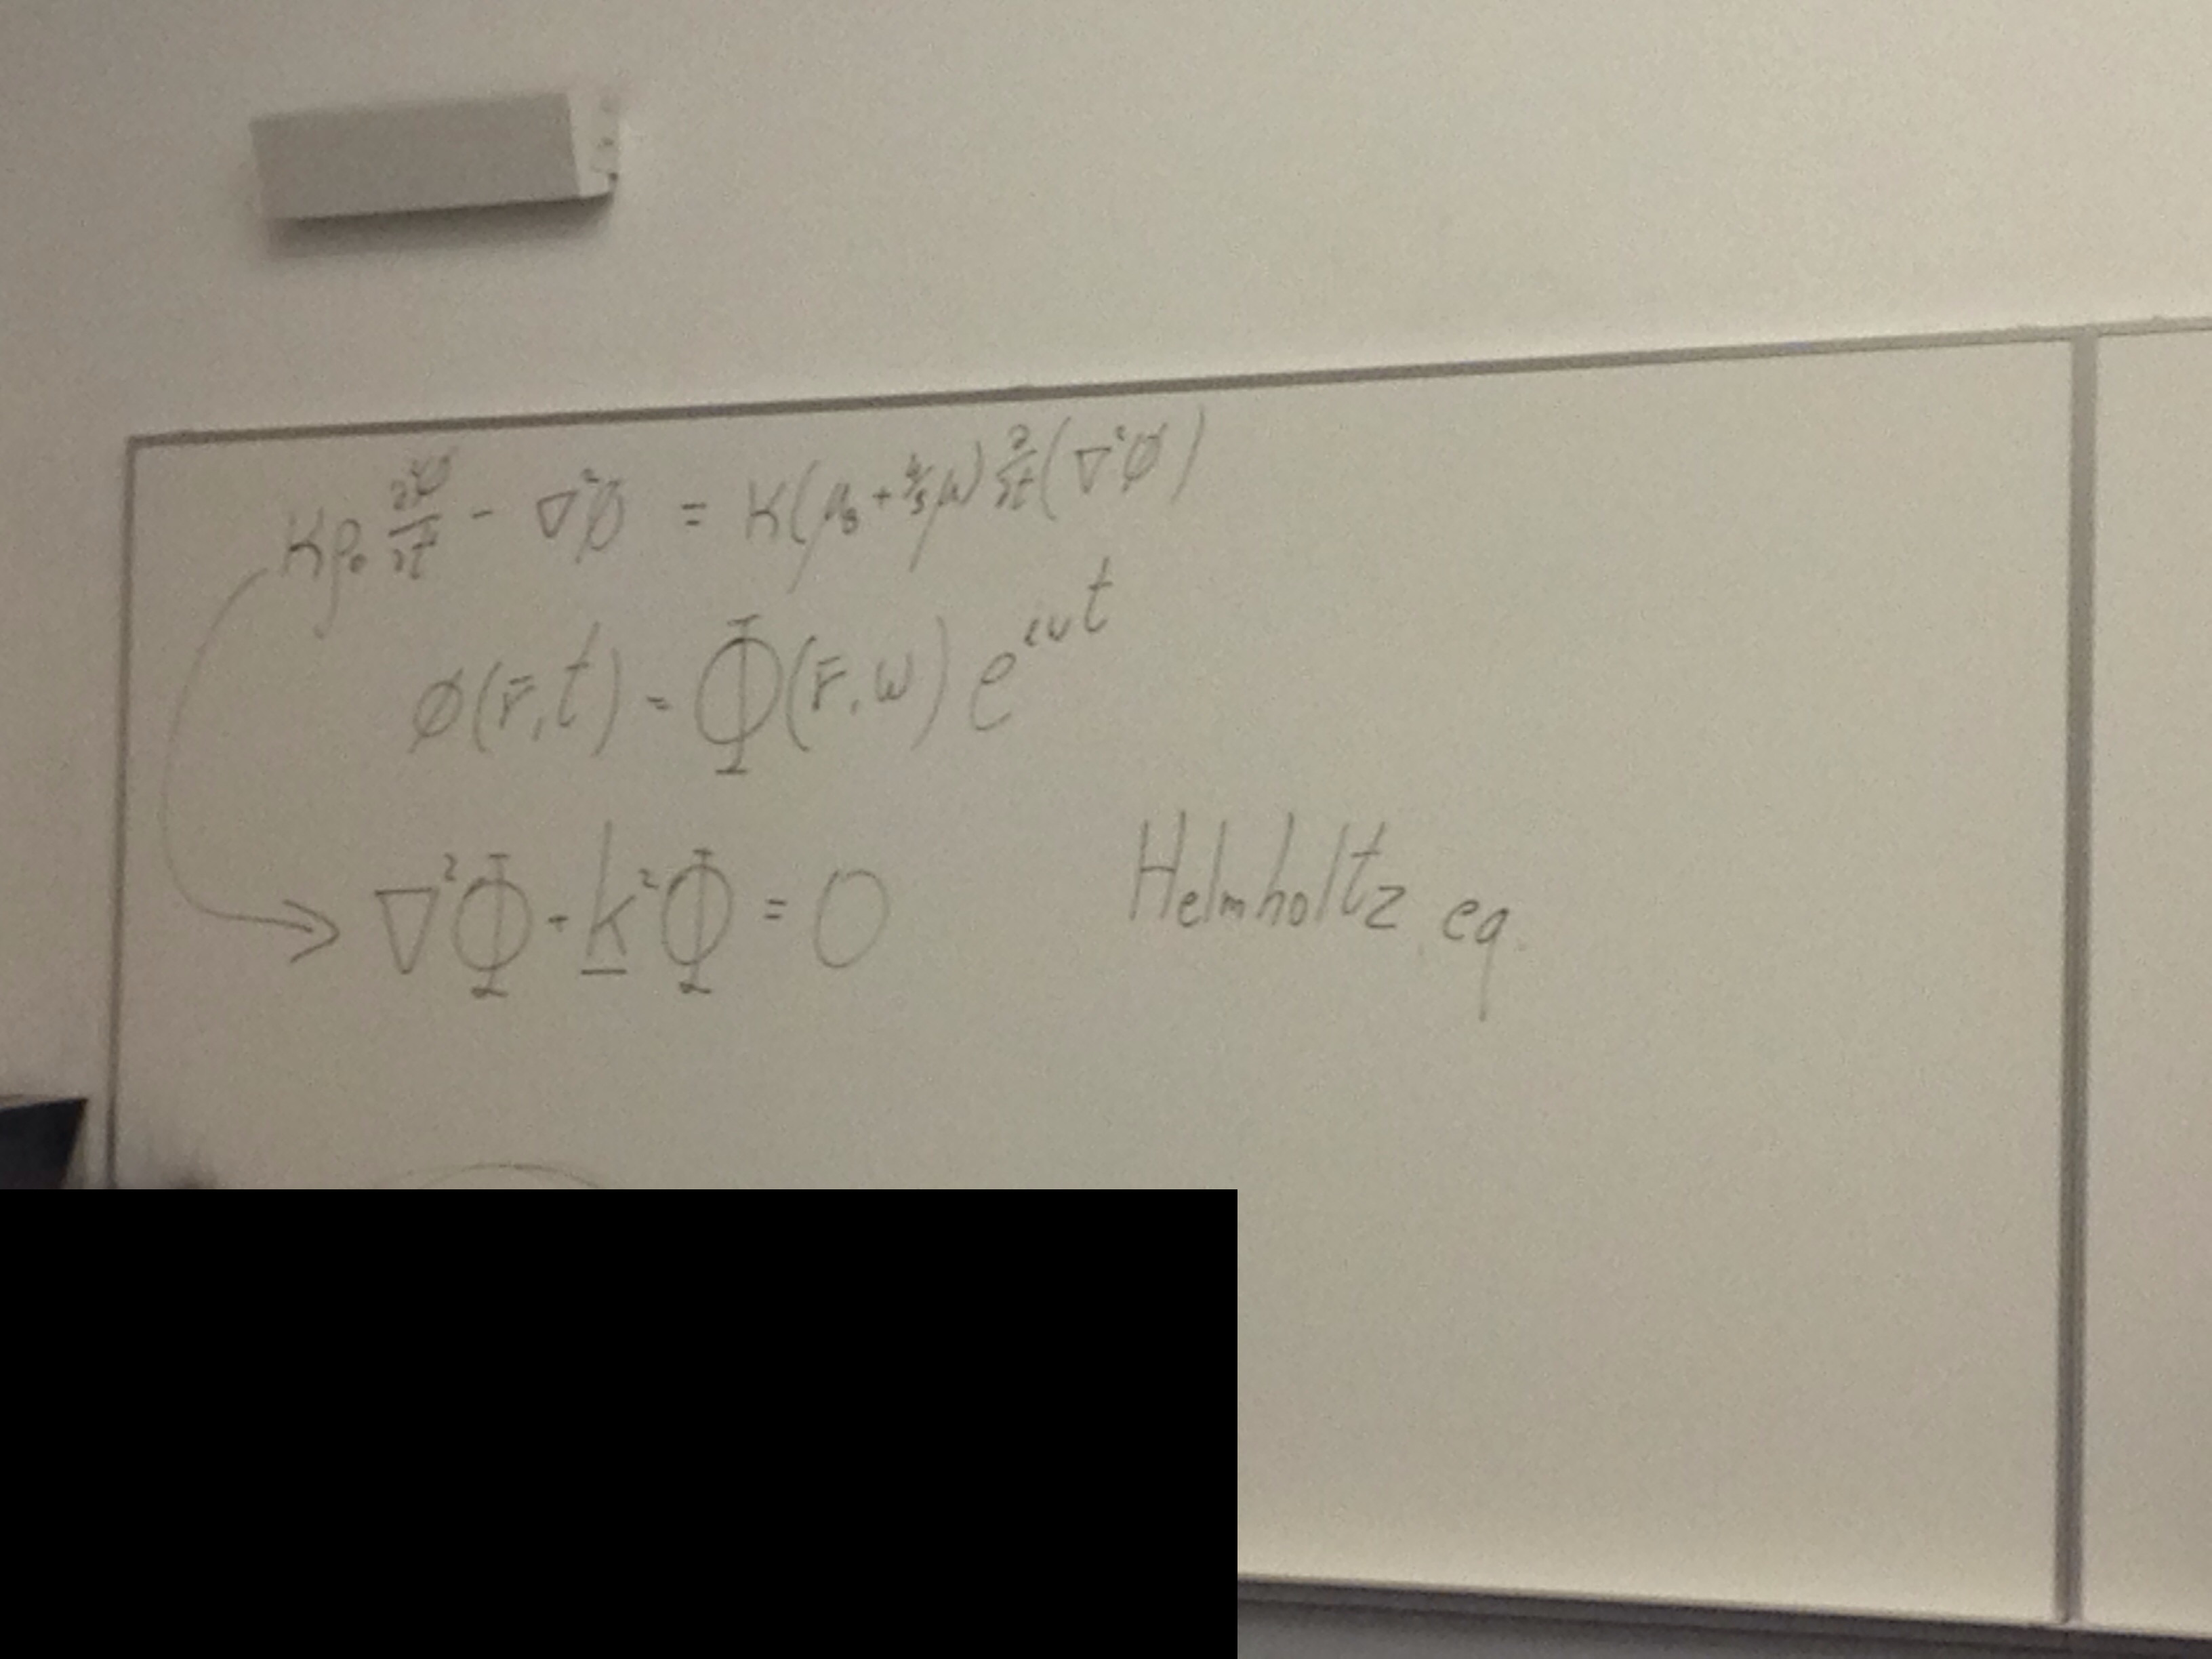 Kρ₀ ∂²φ/∂t² - ∇²φ = K(μ_B + 4/3 μ) ∂/∂t (∇²φ)
φ(r̄,t) = Φ(r̄,ω) e^{iωt}
∇²Φ - k̲²Φ = 0 Helmholtz eq.